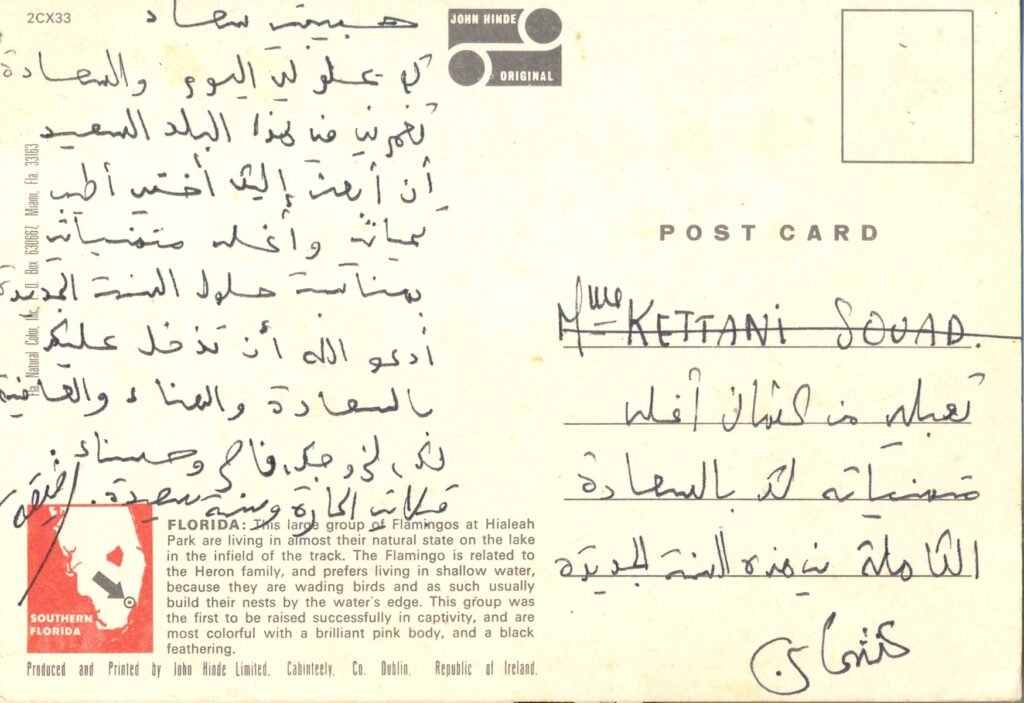 2CX33
JOHN HINDE
ORIGINAL
حبيبتي سعاد
كم يحلو لي اليوم والسعادة
تغمرني في هذا البلد السعيد
أن أبعث إليك أختي أطيب
تحياتي وأغلى متمنياتي
بمناسبة حلول السنة الجديدة
أدعو الله أن تدخل عليكم
بالسعادة والهناء والعافية
لك، لزوجك،
وحسناء.
قبلاتي الحارة وسنة سعيدة.
Fla. Natural Color, Inc., P. O. Box 630667, Miami, Fla. 33163
SOUTHERN
FLORIDA
FLORIDA: This large group of Flamingos at Hialeah
Park are living in almost their natural state on the lake
in the infield of the track. The Flamingo is related to
the Heron family, and prefers living in shallow water,
because they are wading birds and as such usually
build their nests by the water's edge. This group was
the first to be raised successfully in captivity, and are
most colorful with a brilliant pink body, and a black
feathering.
Produced and Printed by John Hinde Limited, Cabinteely, Co. Dublin, Republic of Ireland.
POST CARD
Mme KETTANI SOUAD.
تقبلي من عثمان أغلى
متمنياته لك بالسعادة
الكاملة في هذه السنة الجديدة
عثمان